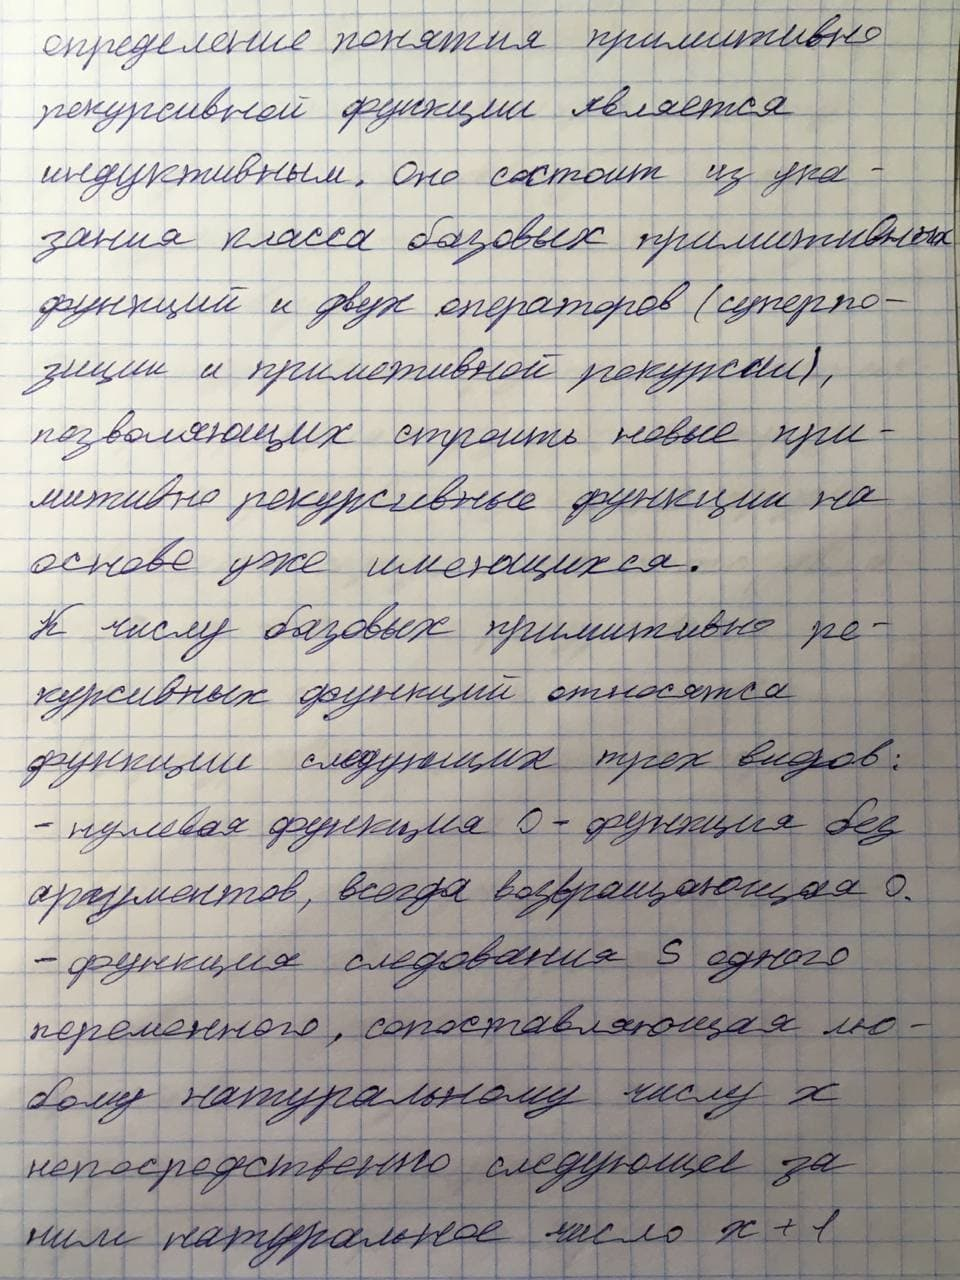 определение понятия примитивно
рекурсивной функции является
индуктивным. Оно состоит из ука-
зания класса базовых примитивных
функций и двух операторов (суперпо-
зиции и приметивной рекурсии),
позволяющих строить новые при-
митивно рекурсивные функции на
основе уже имеющихся.
К числу базовых примитивно ре-
курсивных функций относятся
функции следующих трех видов:
- нулевая функция О - функция без
аргументов, всегда возвращающая 0.
- функция следования S одного
переменного, сопоставляющая лю-
бому натуральному числу x
непосредственно следующее за
ним натуральное число x + 1